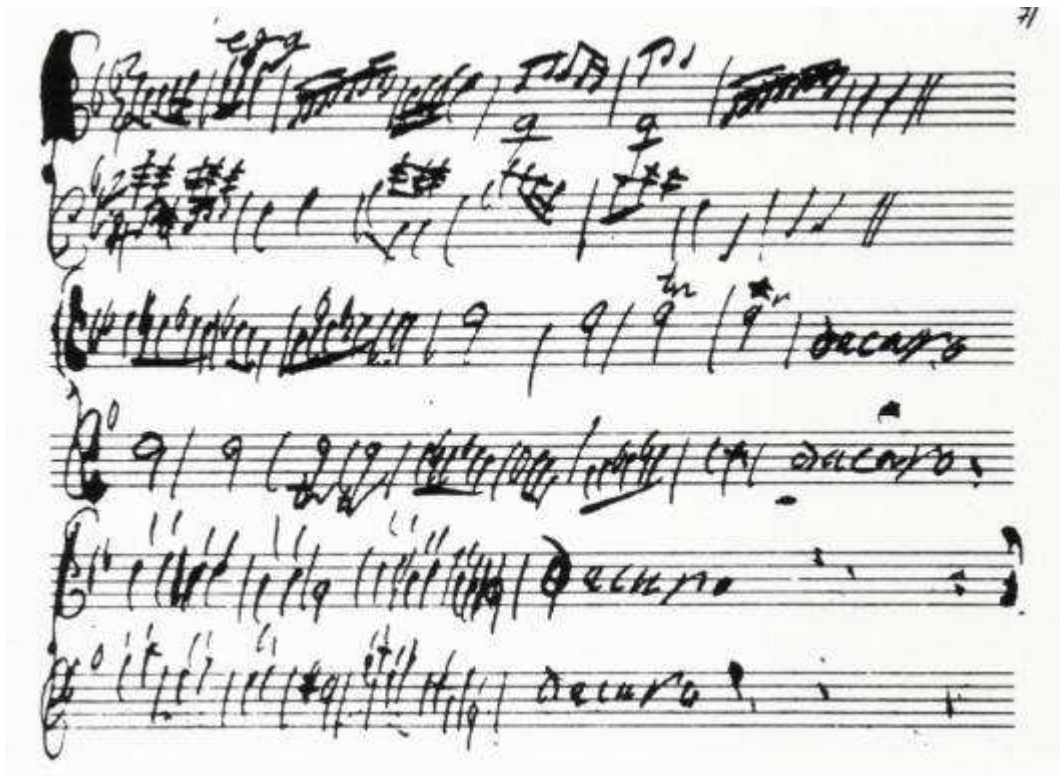 71
tr
dacapo
dacapo
Dacapo
dacapo